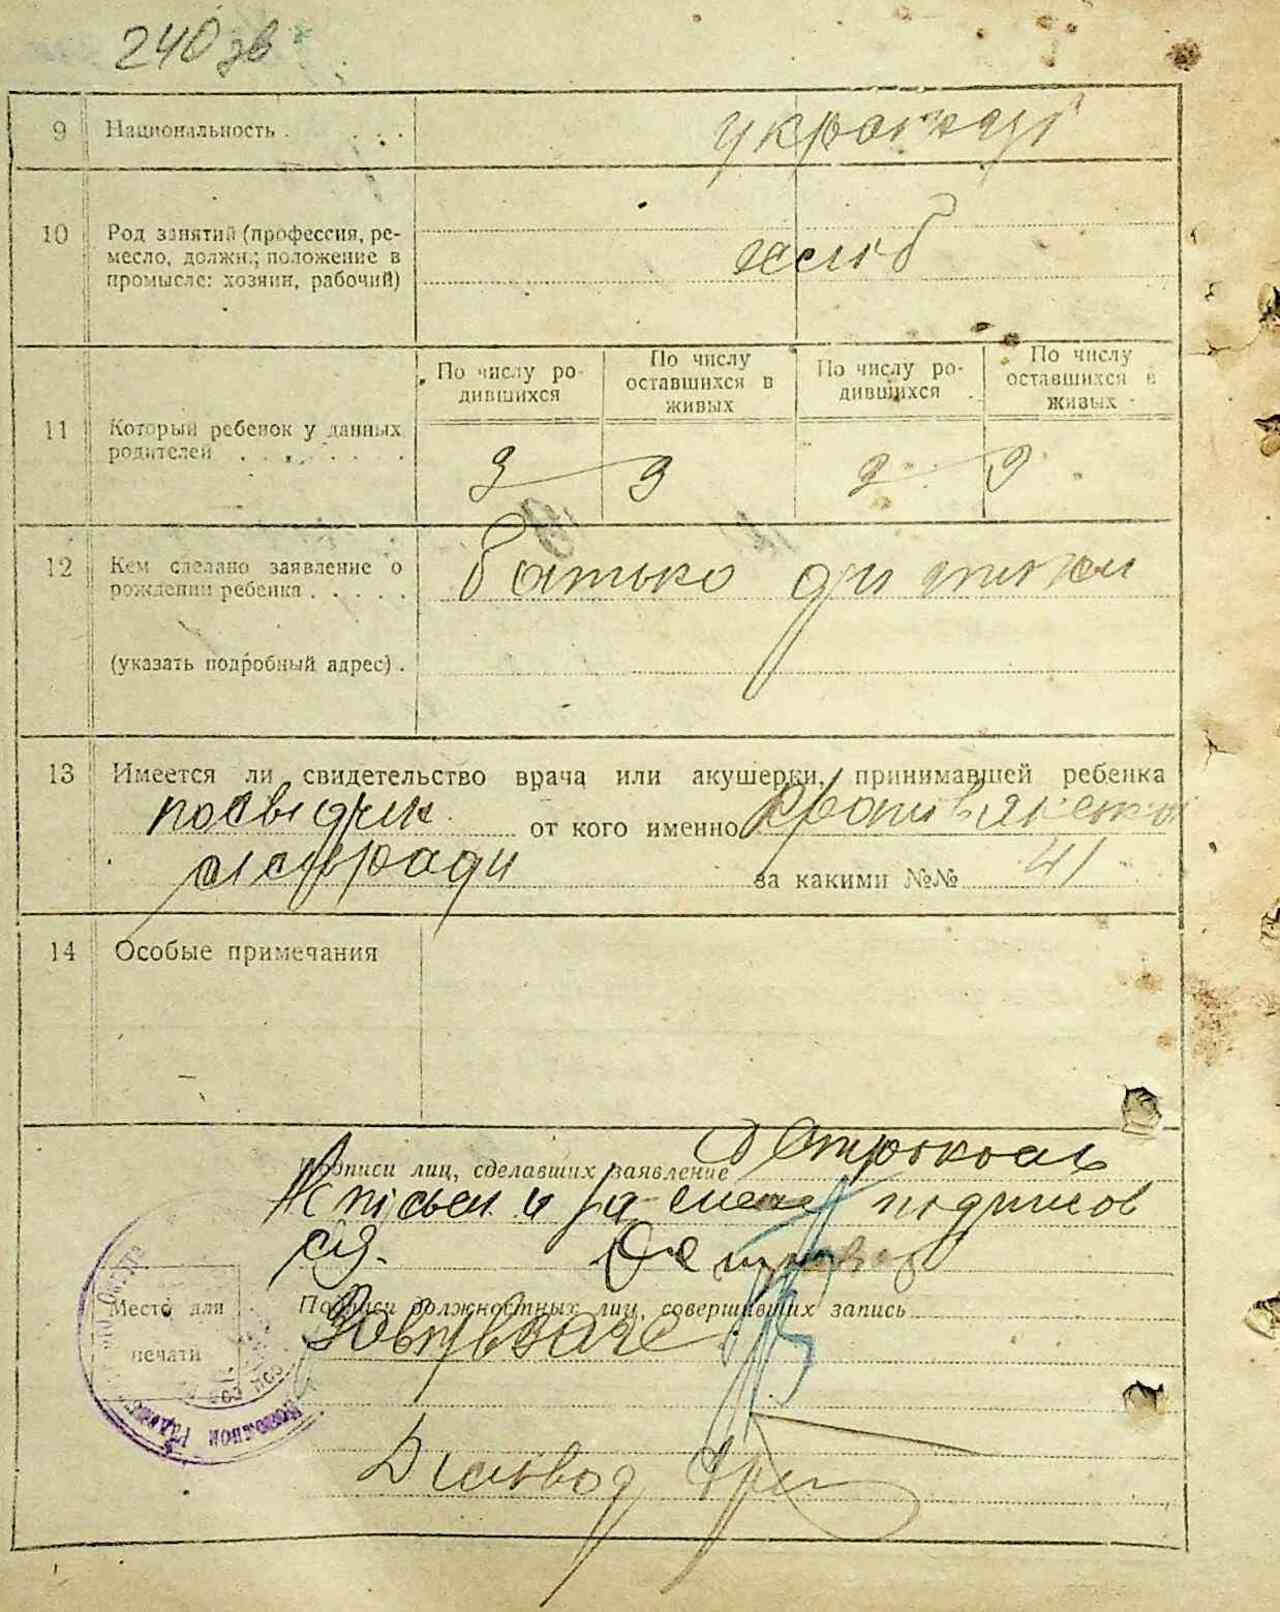 240 зв
9 Национальность . . . .
українці
10 Род занятий (профессия, ре-
месло, должн.; положение в
промысле: хозяин, рабочий)
хліб
По числу ро-
дившихся
По числу
оставшихся в
живых
По числу ро-
дившихся
По числу
оставшихся в
живых
11 Который ребенок у данных
родителей . . . . . . .
3 3
12 Кем сделано заявление о
рождении ребенка . . . . .
батько дитини
(указать подробный адрес) .
13 Имеется ли свидетельство врача или акушерки, принимавшей ребенка
посвідчен от кого именно
сільради за какими №№ 41
14 Особые примечания
Подписи лиц, сделавших заявление
Неписьм и за підписов
Место для
печати
Подписи должностных лиц, совершивших запись
Завідуваче
Діловод